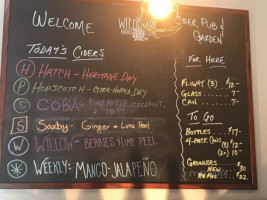 WELCOME
CIDER PUB &
GARDEN
TODAY'S CIDERS
H HATCH - HERITAGE DRY
P HOPSCOTCH - CITRA-HOPPED DRY
C COBA - PINEAPPLE, COCONUT,
S Saxby - Ginger + Lime Peel
W WILLOW - BERRIES + LIME PEEL
WEEKLY: MANGO-JALAPEÑO
FOR HERE
FLIGHT (3) $12-
GLASS 7-
CAN 7-
TO GO
BOTTLES $17-
4-PACK CANS
GROWLERS
NEW $30
REFILL $22